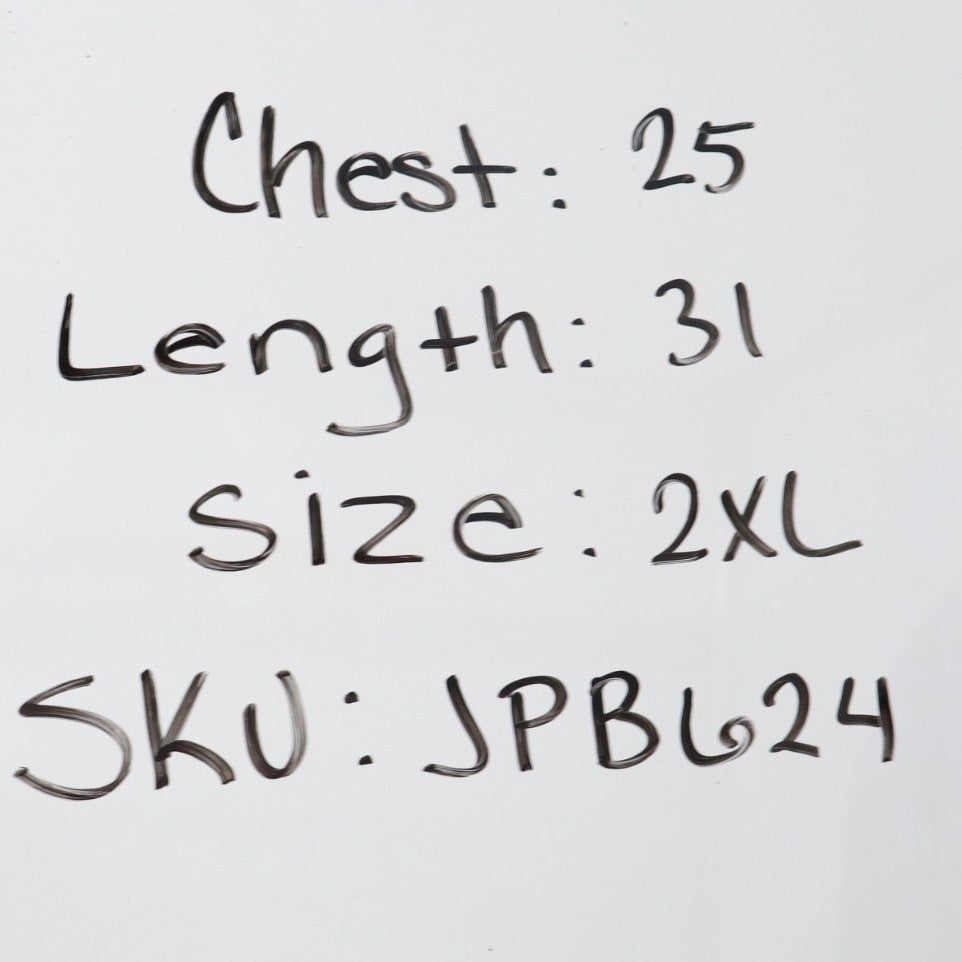 Chest: 25
Length: 31
Size: 2XL
SKU: JPB624